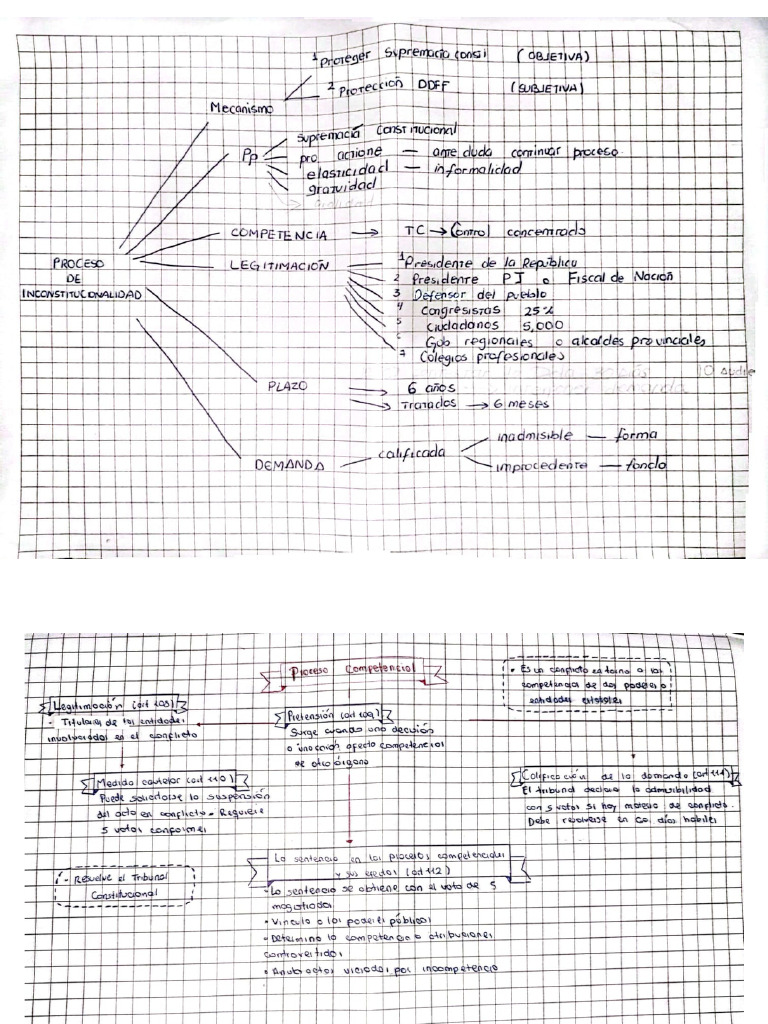 1 Proteger Supremacía Consti (OBJETIVA)
2 Protección DDFF (SUBJETIVA)
Mecanismo
Pp
Supremacía Constitucional
pro actione — ante duda continuar proceso
elasticidad — informalidad
gratuidad
COMPETENCIA → TC → Control concentrado
PROCESO
DE
INCONSTITUCIONALIDAD
LEGITIMACIÓN
1 Presidente de la República
2 Presidente PJ o Fiscal de Nación
3 Defensor del pueblo
4 Congresistas 25%
5 Ciudadanos 5,000
6 Gob regionales o alcaldes provinciales
7 Colegios profesionales
PLAZO
→ 6 años
→ Tratados → 6 meses
DEMANDA — calificada
inadmisible — forma
improcedente — fondo
Proceso Competencial
- Es un conflicto en torno a las
competencia de dos poderes o
entidades estatales
Legitimación (art 108)
- Titulares de las entidades
involucrados en el conflicto
Pretensión (art 109)
Surge cuando una decisión
o inacción afecta competencias
de otro órgano
Medida cautelar (art 110)
Puede solicitarse la suspensión
del acto en conflicto - Requiere
5 votos conformes
Calificación de la demanda (art 111)
El tribunal declara la admisibilidad
con 5 votos si hay materia de conflicto.
Debe resolverse en 60 días hábiles
- Resuelve el Tribunal
Constitucional
La sentencia en los procesos competenciales
y sus efectos (art 112)
- La sentencia se obtiene con el voto de 5
magistrados
• Vincula a los poderes públicos
• Determina la competencia o atribuciones
controvertidas
• Anula actos viciados por incompetencia